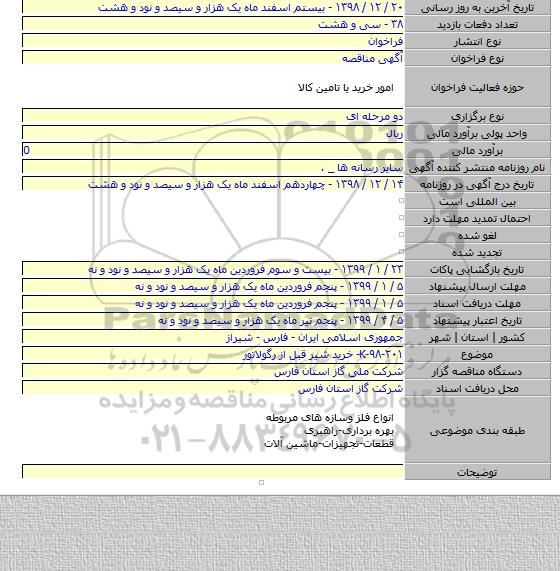 تاریخ آخرین به روز رسانی ۲۰ / ۱۲ / ۱۳۹۸ - بیستم اسفند ماه یک هزار و سیصد و نود و هشت
تعداد دفعات بازدید ۳۸ - سی و هشت
نوع انتشار فراخوان
نوع فراخوان آگهی مناقصه
حوزه فعالیت فراخوان امور خرید یا تامین کالا
نوع برگزاری دو مرحله ای
واحد پولی برآورد مالی ریال
برآورد مالی 0
نام روزنامه منتشر کننده آگهی سایر رسانه ها _ .
تاریخ درج آگهی در روزنامه ۱۴ / ۱۲ / ۱۳۹۸ - چهاردهم اسفند ماه یک هزار و سیصد و نود و هشت
بین المللی است
احتمال تمدید مهلت دارد
لغو شده
تجدید شده
تاریخ بازگشایی پاکات ۲۳ / ۱ / ۱۳۹۹ - بیست و سوم فروردین ماه یک هزار و سیصد و نود و نه
مهلت ارسال پیشنهاد ۵ / ۱ / ۱۳۹۹ - پنجم فروردین ماه یک هزار و سیصد و نود و نه
مهلت دریافت اسناد ۵ / ۱ / ۱۳۹۹ - پنجم فروردین ماه یک هزار و سیصد و نود و نه
تاریخ اعتبار پیشنهاد ۵ / ۴ / ۱۳۹۹ - پنجم تیر ماه یک هزار و سیصد و نود و نه
کشور | استان | شهر جمهوری اسلامی ایران - فارس - شیراز
موضوع K-۹۸-۲۰۱- خرید شیر قبل از رگولاتور
دستگاه مناقصه گزار شرکت ملی گاز استان فارس
محل دریافت اسناد شرکت گاز استان فارس
طبقه بندی موضوعی انواع فلز وسازه های مربوطه
بهره برداری-راهبری
قطعات-تجهیزات-ماشین آلات
توضیحات
پایگاه اطلاع رسانی مناقصه و مزایده